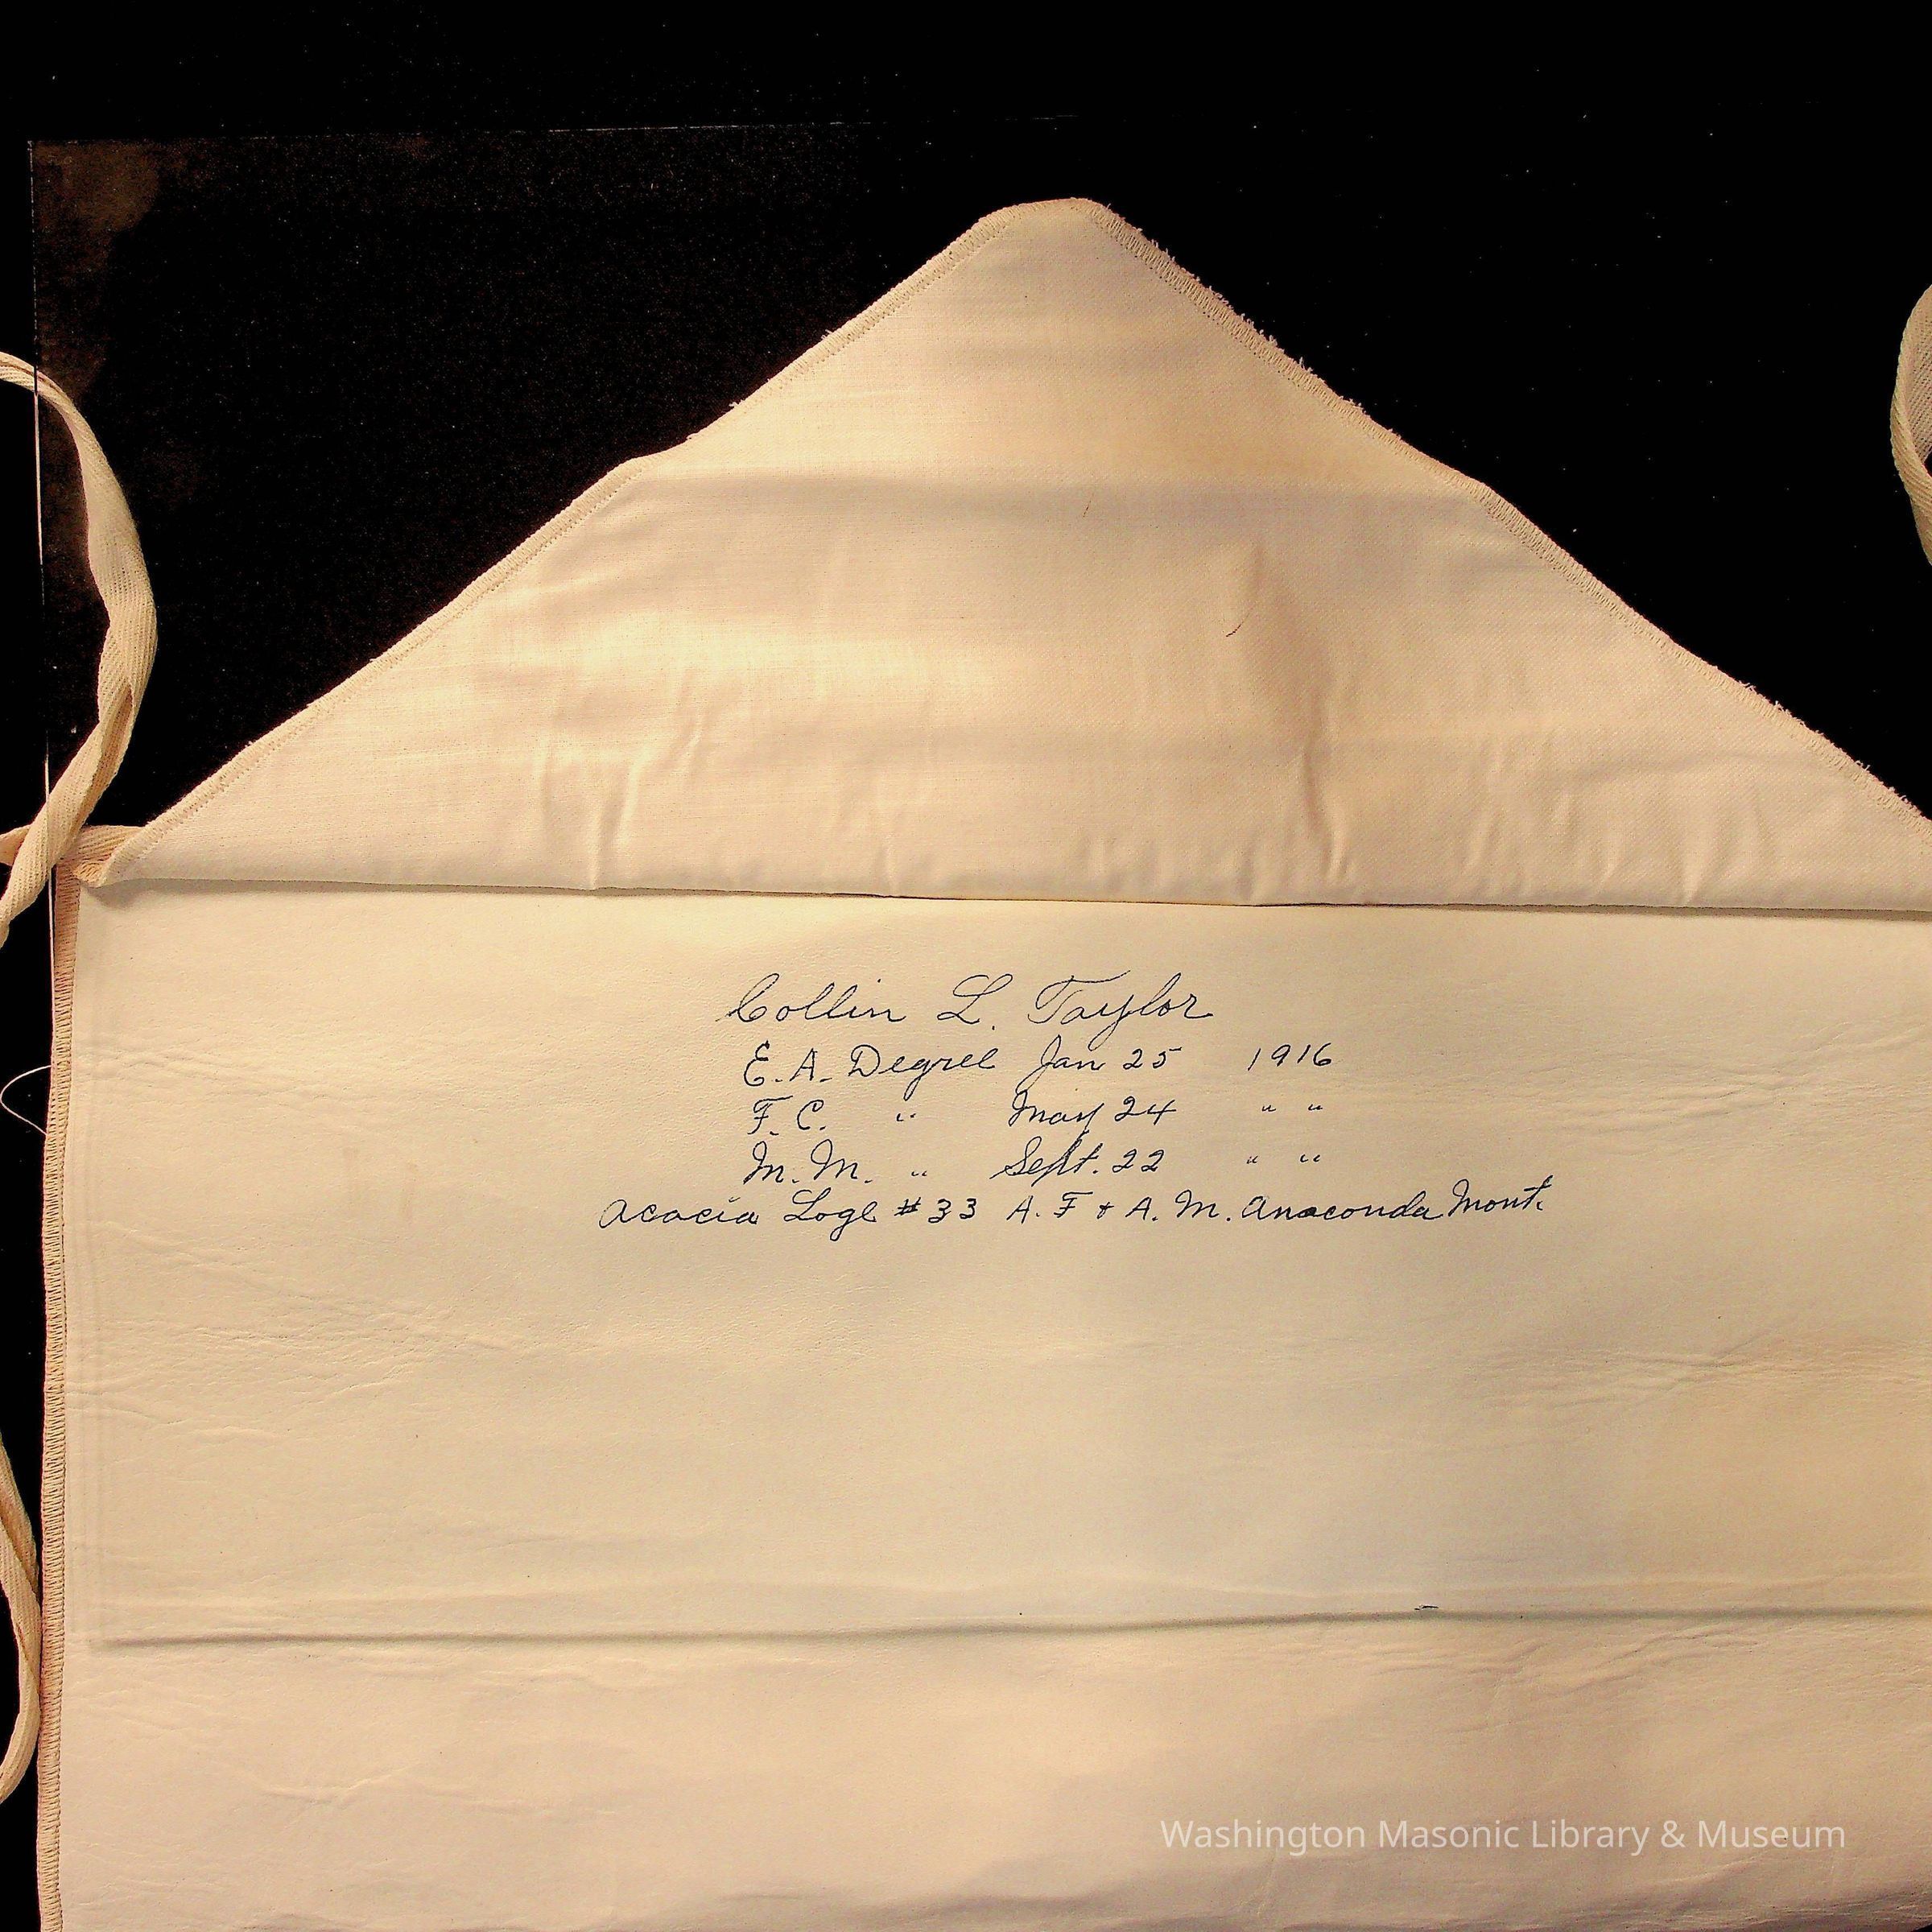 Collin L. Taylor
E.A. Degree Jan 25 1916
F. C. " May 24 " "
M. M. " Sept. 22 " "
Acacia Loge #33 A. F & A. M. Anaconda Mont.
Washington Masonic Library & Museum